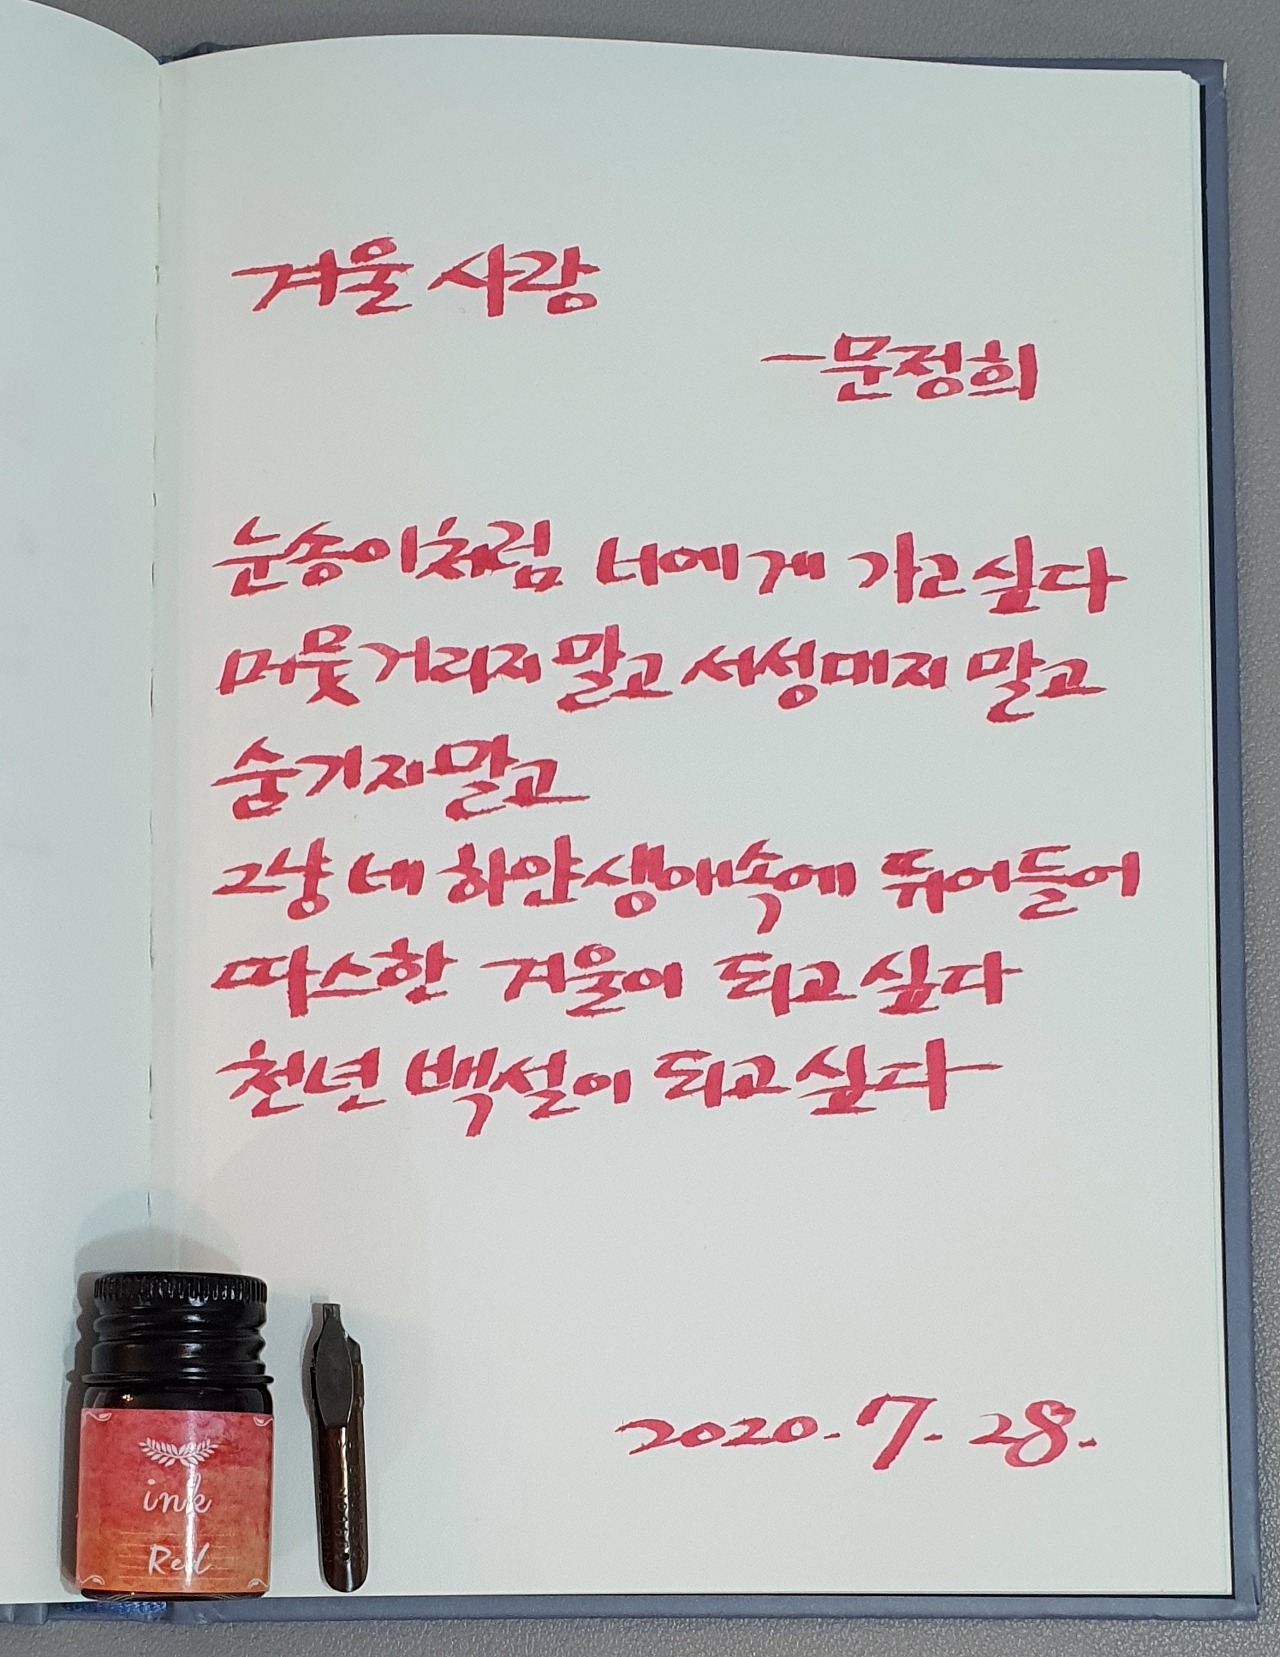 겨울 사랑
-문정희
눈송이처럼 너에게 가고싶다
머뭇거리지말고 서성대지 말고
숨기지말고
그냥 네 하얀생애속에 뛰어들어
따스한 겨울이 되고싶다
천년 백설이 되고싶다
2020.7.28.
ink
Red